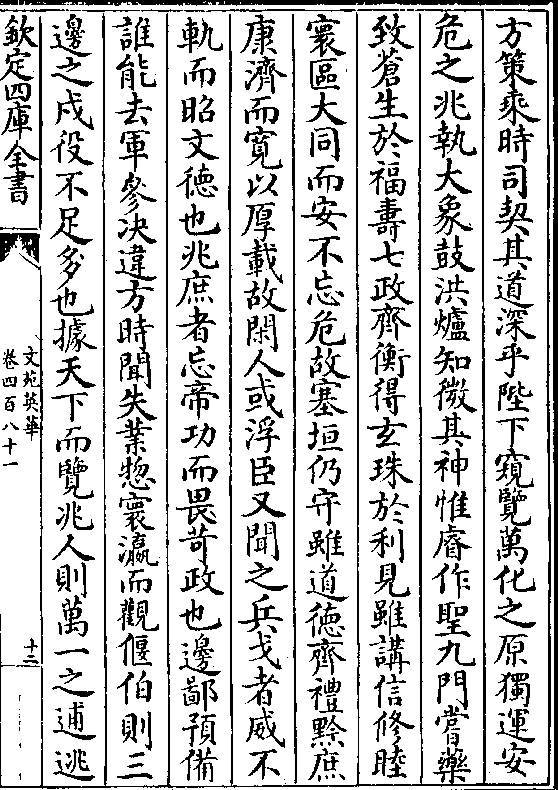 方策乘時司契其道深乎陛下窺覽萬化之原獨運安
危之兆執大象鼓洪爐知微其神惟睿作聖九門嘗藥
致蒼生於福壽七政齊衡得玄珠於利見雖講信修睦
寰區大同而安不忘危故塞垣仍守雖道德齊禮黔庶
康濟而寬以厚載故閑人或浮臣又聞之兵戈者威不
軌而昭文德也兆庶者忘帝功而畏苛政也邊鄙預備
誰能去軍參決違方時聞失業惣寰瀛而觀偃伯則三
邊之戍役不足多也據天下而覽兆人則萬一之逋逃
欽定四庫全書
文苑英華
卷四百八十一
十二